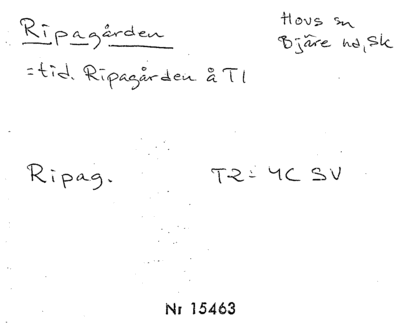 Ripagården
Hovs sn
Bjäre hd, Sk
=tid. Ripagården å T1
Ripag.
T2= 4C SV
Nr 15463